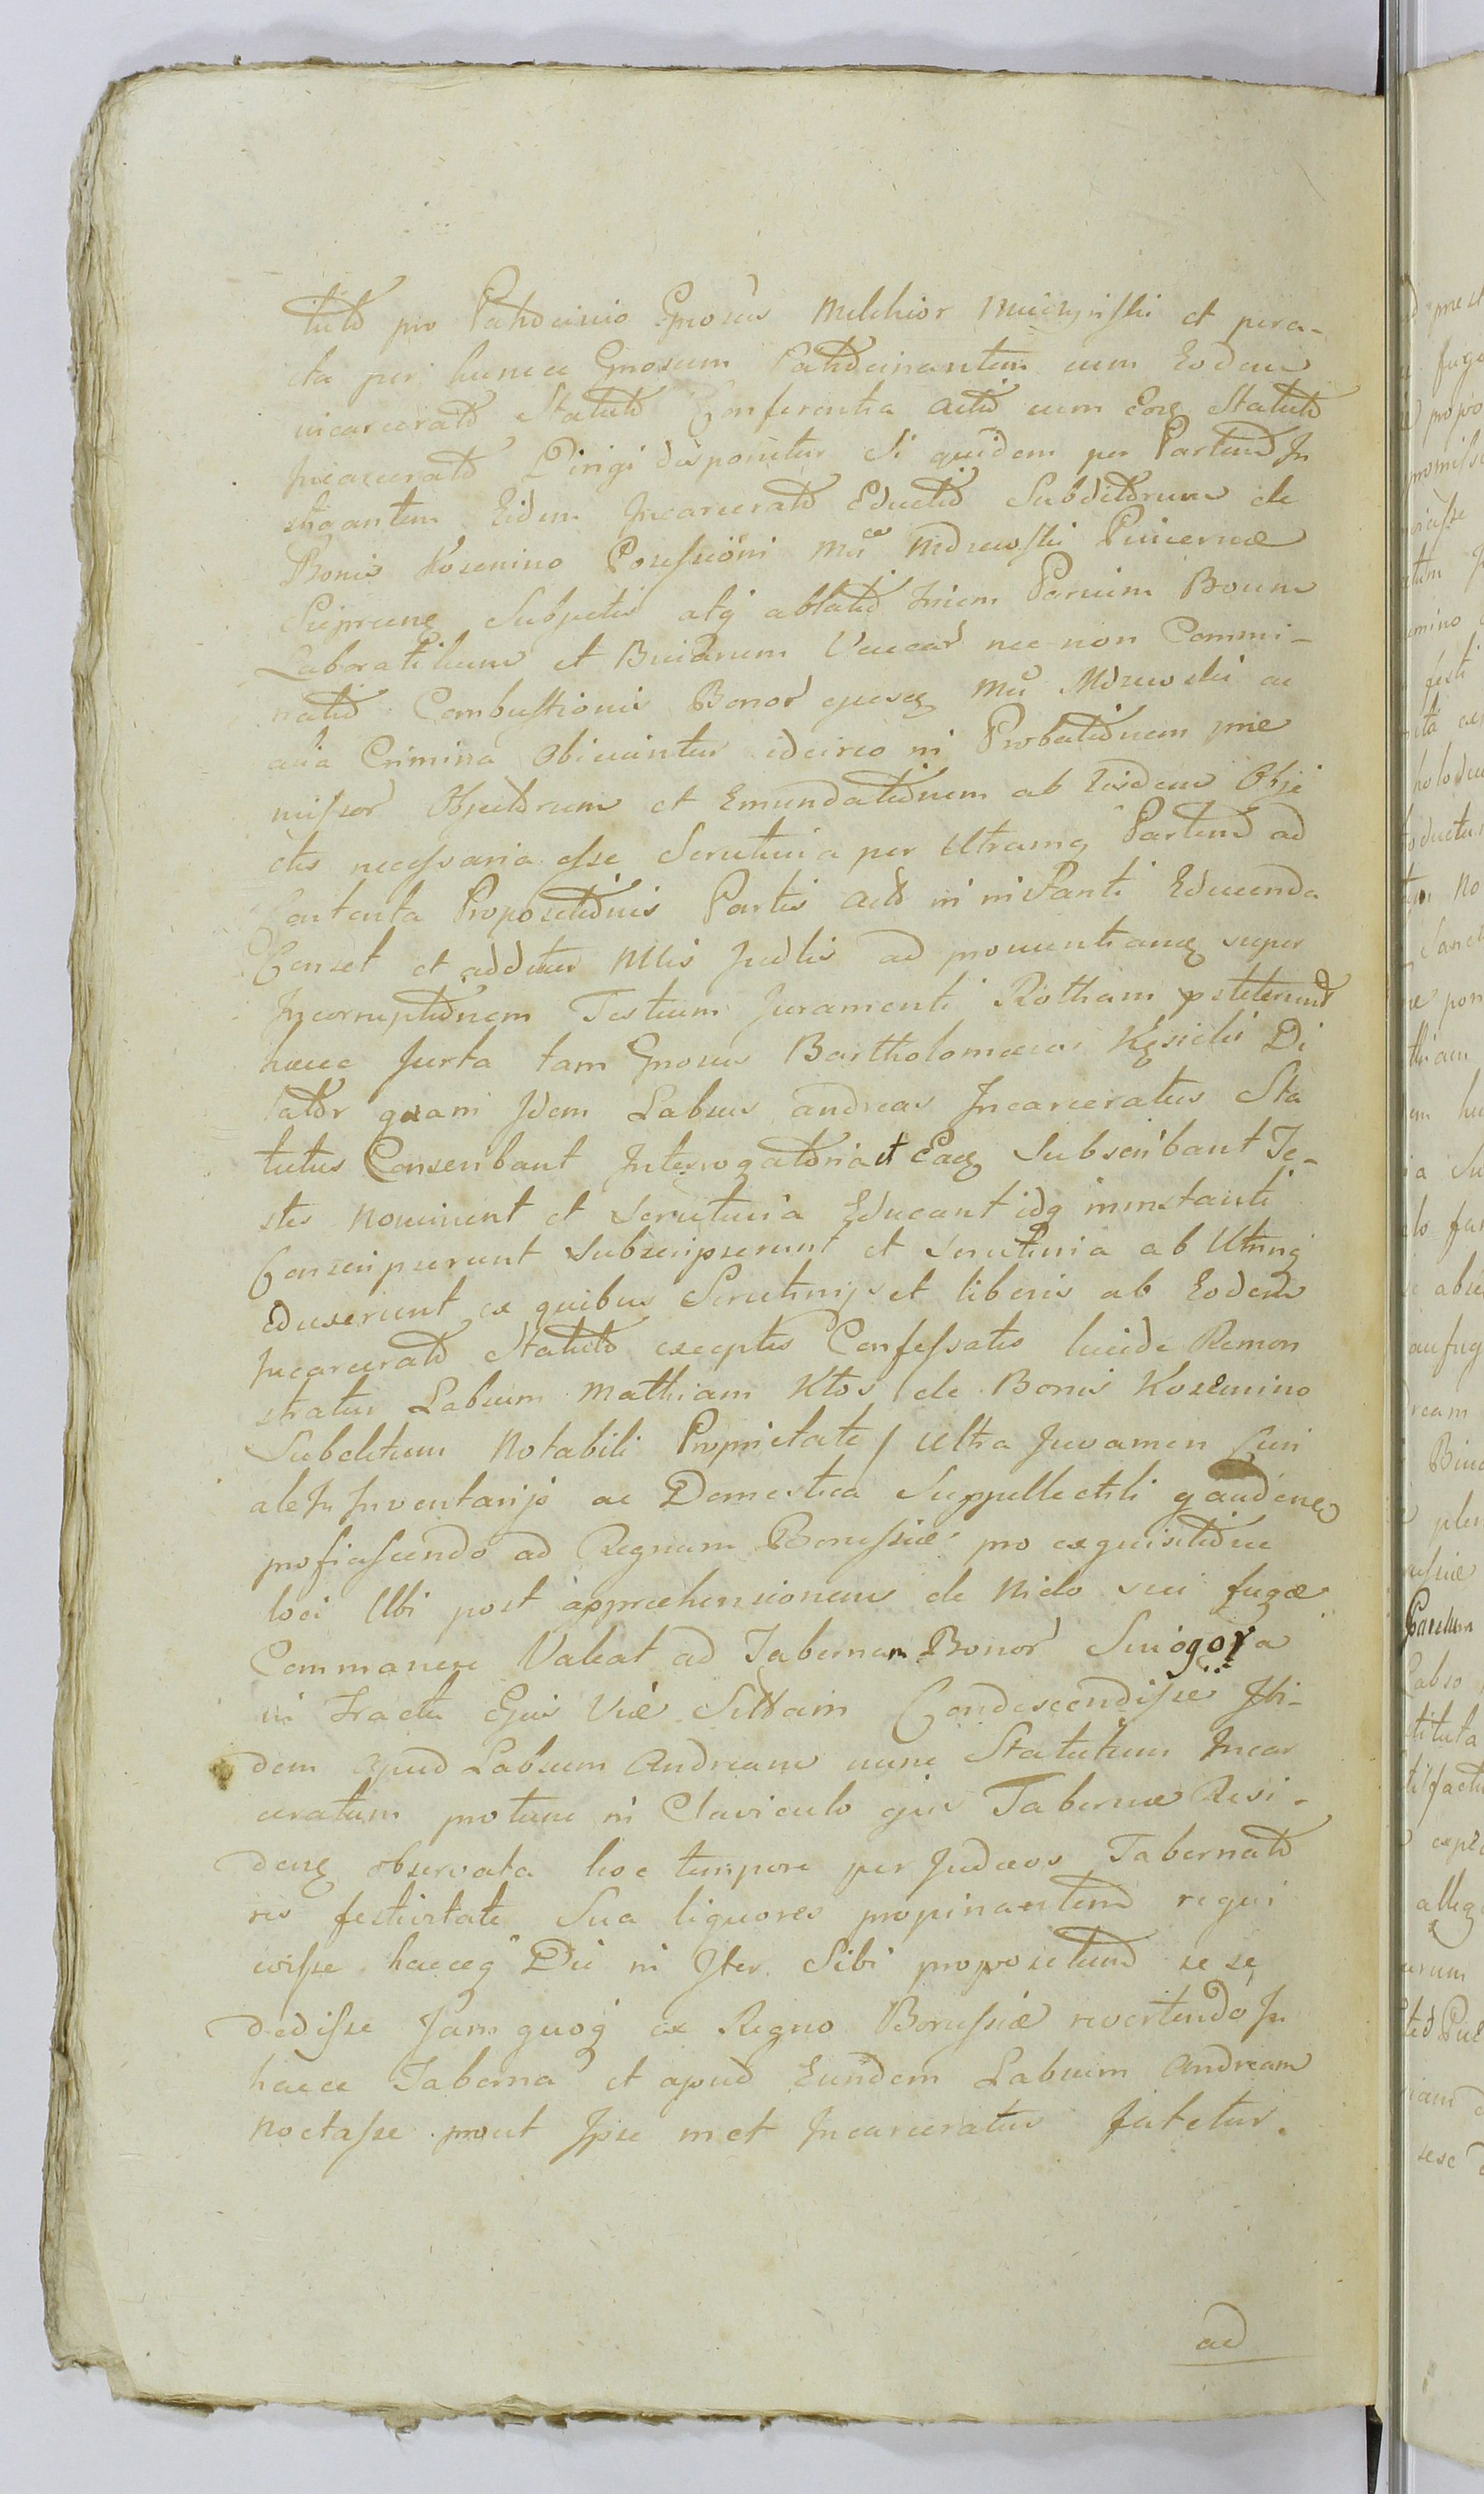 tuto pro Patrocinio Gnosus Melchior et pera-
cta per hunce Gnosum Patrocinantem cum Eodem
incarcerato Statuto Conferentia actio cum Eoq Statuto
Incarcerato Dirigi disponitur Si quidem per Partem In
stigantem Eidem Incarcerato Eductio Subditorum de
Bonis Kozenino Possessioni Mci Mdzewski Pincernæ
Subjectis atq ablatio Trium Parium Boum
Laboratilium et Binarum Vaccar nec non Commi-
natio Combustionis Bonor ejusq Mci Mdzewski ac
alia Crimina Obiiciuntur idcirco in Probationem præ
missor Objectorum et Emundationem ab Eisdem Obje
ctis necessaria esse Scrutinia per Utramq Partem ad
Contenta Propositionis Partis Act in instanti Educenda
Censet et additur Nllis Judlis ad pronuntianq super
Incorruptionem Testium Juramenti Rotham pstiterunt
hæcce Jurta tam Gnosus Bartholomæus Kęsicki Di
lator quam Idem Labsus Andreas Incarceratus Sta
tutus Conscribant Interrogatoria et Eaq Subscribant Te-
stes nominent et Scrutinia Educant idq in instanti
Conscripserunt Subscripserunt et Scrutinia ab Utrinq
Eduxerunt ex quibus Scrutinijs et liberis ab Eodem
Incarcerato Statuto exceptis Confessatis lucide Remon
stratur Labsum Mathiam Ktos de Bonis Kozenino
Subditum Notabili Proprietate / Ultra Juvamen Curi
ale In Inventarijo ac Domestica Suppellectili gaudenq
proficiscendo ad Regnum Borussiæ pro exquisitione
loci Ubi post apprehensionem de Nido sui fugæ
Commanere Valeat ad Tabernam Bonor Swiogora
in Tractu Ejus Viæ Sittam Condescendisse Ibi-
dem apud Labsum Andream nunc Statutum Incar
ceratum protunc in Claviculo ejus Tabernæ Resi-
denq observata hoc tempore per Judæos Tabernato
res festivitate Sua liquores propinantem requi
evisse hacceq Die in Iter Sibi propositum se se
dedisse Jam quoq ex Regno Borussiæ revertendo In
hacce Taberna et apud Eundem Labsum Andream
noctasse prout Ipse met Incarceratus fatetur.
ad